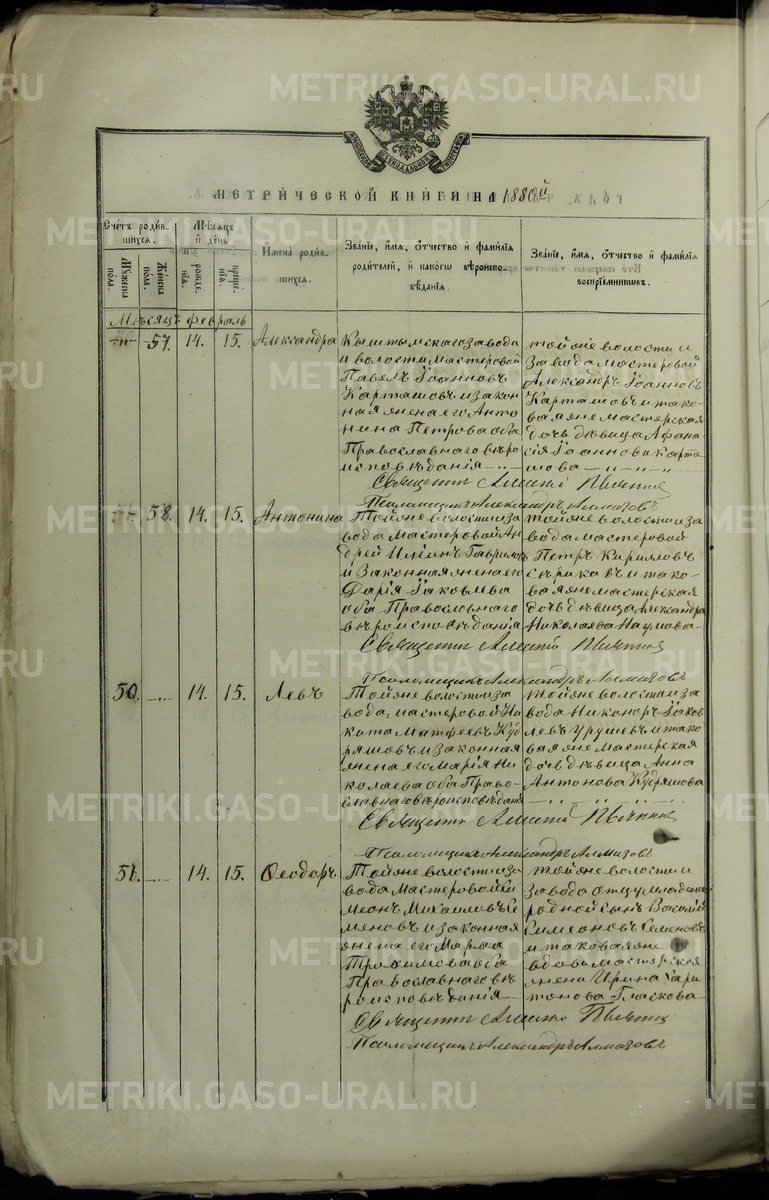 METRIKI.GASO-URAL.RU
МЕТРИ́ЧЕСКОЙ КНИ́ГИ НА 1880й
Сче́тъ роди́в-
шихся.
Мѣ́сяцъ
и҆ де́нь
Мꙋ́жеска
пола.
Же́нска
пола.
рожде-
нїѧ.
креще́-
нїѧ.
И҆мена роди́в-
шихся.
Зва́нїе, и҆́мѧ, ѻ҆́тчество и҆ фами́лїѧ
роди́телей, и҆ како́гѡ вѣ́роиспо-
вѣ́данїѧ.
Зва́нїе, и҆́мѧ, ѻ҆́тчество и҆ фами́лїѧ
воспрїе́мникѡвъ.
Мѣсяцъ февраль
57. 14. 15. Александра
Кыштымскаго завода
и волости мастеровой
Павелъ Іоанновъ
Карташовъ и закон
ная жена его Анто
нина Петрова оба
Православнаго вѣро
исповѣданія
той же волости и
завода мастеровой
Александръ Іоанновъ
Карташовъ и тако-
вая же мастерская
дочь дѣвица Афана
сія Іоаннова Карта
шова
Священникъ
Псаломщикъ Александръ Алмазовъ
58. 14. 15. Антонина
Той же волости и за
вода мастеровой Ан
дрей Илиинъ Гавриловъ
и законная жена его
Дарія Іаковлева
оба Православнаго
вѣроисповѣданія
той же волости и за
вода мастеровой
Петръ Кирилловъ
и тако-
вая же мастерская
дочь дѣвица Александра
Николаева Наумова
Священникъ
Псаломщикъ Александръ Алмазовъ
50. 14. 15. Левъ
Той же волости и за
вода, мастеровой Ни
кита Матфеевъ Куд
ряшовъ и законная
жена его Марія Ни
колаева оба Право-
славнаго вѣроисповѣданія
той же волости и за
вода Никоноръ Іаков
левъ Урушевъ и тако
вая же мастерская
дочь дѣвица Анна
Антонова Кудряшова
Священникъ
Псаломщикъ Александръ Алмазовъ
51. 14. 15. Ѳеодоръ
Той же волости и за
вода мастеровой Си
меонъ Михаиловъ Се
меновъ и законная
жена его Марѳа
Трофимова оба
Православнаго вѣ
роисповѣданія
той же волости и
завода отцу младенца
родной сынъ Василій
Симеоновъ Семеновъ
и таковая же
вдова мастерская
жена Ирина Хари
тонова Гласкова
Священникъ
Псаломщикъ Александръ Алмазовъ